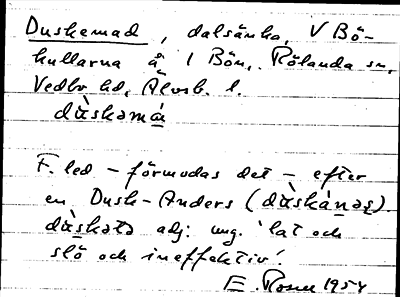 Duskemad, dalsänka, V Bö-
kullarna å 1 Bön, Rölanda sn,
Vedbo hd, Älvsb. l.
dùskəmá
F. led – förmodas det – efter
en Dusk-Anders (dùskánəş).
dùskətə adj. ung. 'lat och
slö och ineffektiv'.
E. 1954